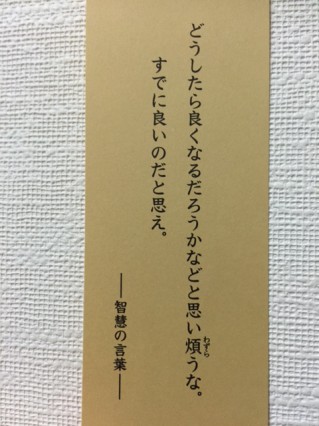 どうしたら良くなるだろうかなどと思い煩うな。
わずら
すでに良いのだと思え。
――智慧の言葉――